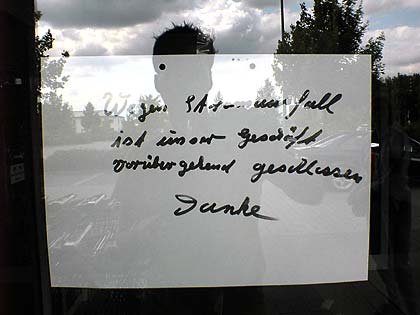 Wegen Stromausfall
ist unser Geschäft
vorübergehend geschlossen
Danke